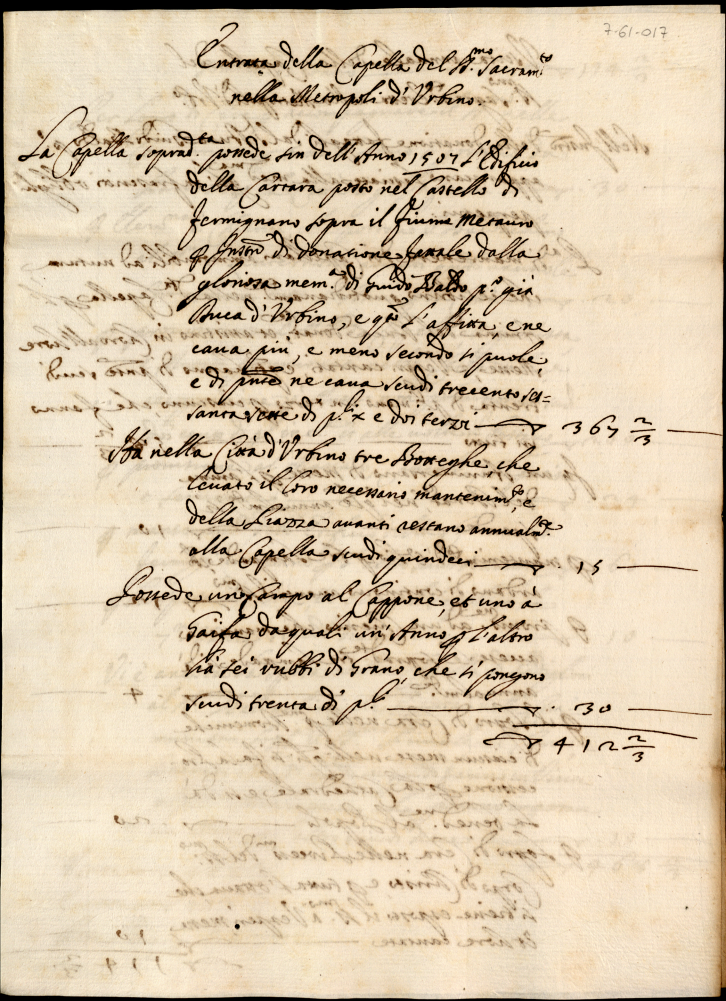 7-61-017
Entrata della Capella del SS.mo Sacram.to
nella Metropoli d'Urbino
La Capella soprad.ta possede sin dell'Anno 1507 l'Edificio
della Cartara posto nel Castello di
Fermignano sopra il fiume Metauro
p Instro. di donatione fattale dalla
gloriosa mem.a di Guido Baldo p.o già
Duca d'Urbino, e q.sto l'affitta, e ne
cava più, e meno secondo si puole,
e di pnte ne cava scudi trecento ses=
santa sette di p.li x e doi terzi 367 2/3
Hà nella Città d'Urbino tre Botteghe che
levato il loro necessario mantenim.to, e
della Piazza avanti restano annualm.te
alla Capella scudi quindeci 15
Possede un Campo al Cappone, et uno à
Gaifa da quali un'Anno p l'altro
hà sei rubbi di Grano, che si pongono
scudi trenta di p.li 30
412 2/3